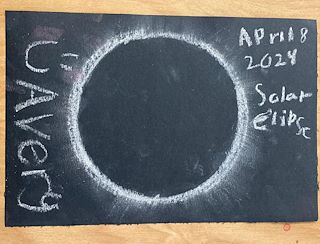 Avery
APril 8
2024
Solar
ElipSe